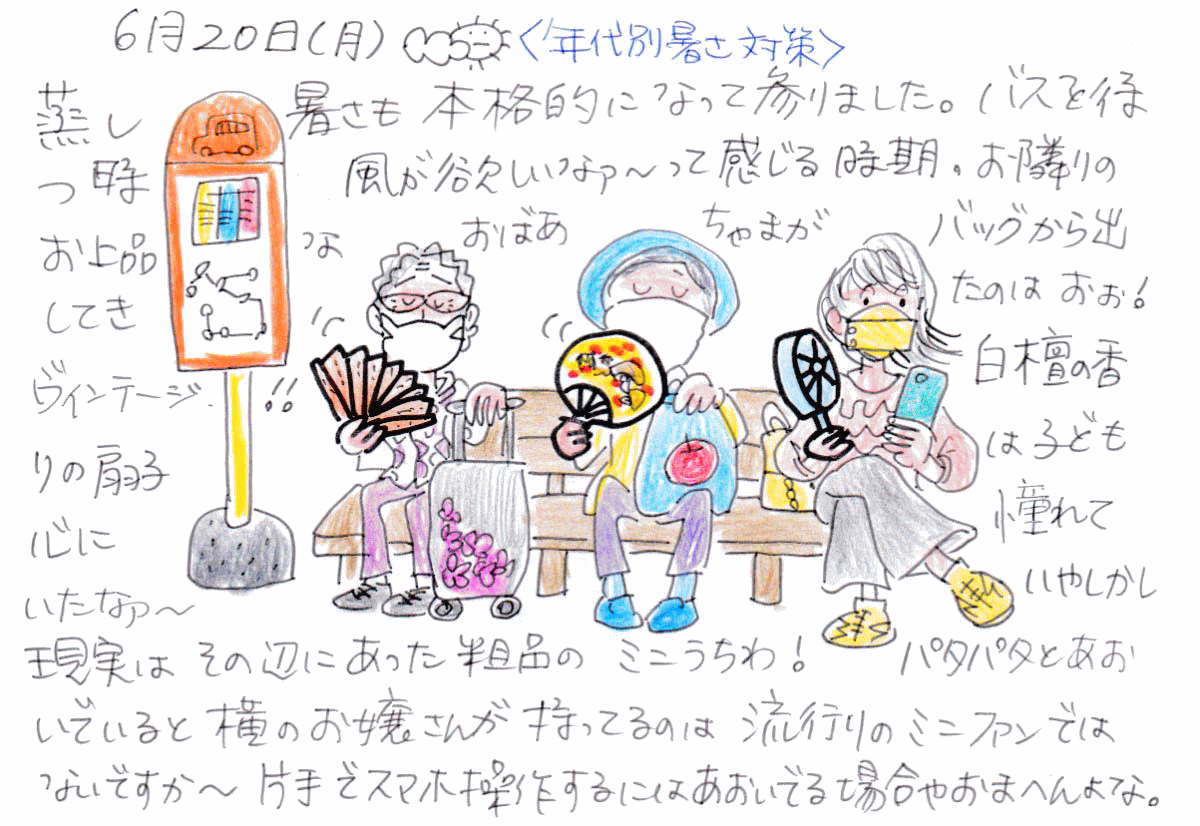 6月20日(月) <年代別暑さ対策>
蒸し暑さも本格的になって参りました。バスを待
つ時 風が欲しいなァ〜って感じる時期。お隣りの
お上品な おばあちゃまが バッグから出
してき たのは おぉ!
ヴィンテージ!! 白檀の香
りの扇子 は子ども
心に 憧れて
いたなァ〜 いやしかし
現実は その辺にあった粗品の ミニうちわ! パタパタとあお
いでいると 横のお嬢さんが 持ってるのは 流行りのミニファンでは
ないですか〜 片手でスマホ操作するにはあおいでる場合やおまへんよな。